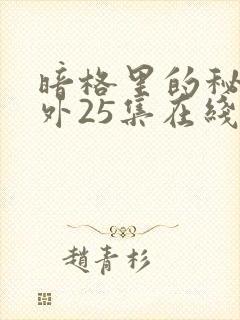 暗格里的秘
外25集在綫
趙青杉